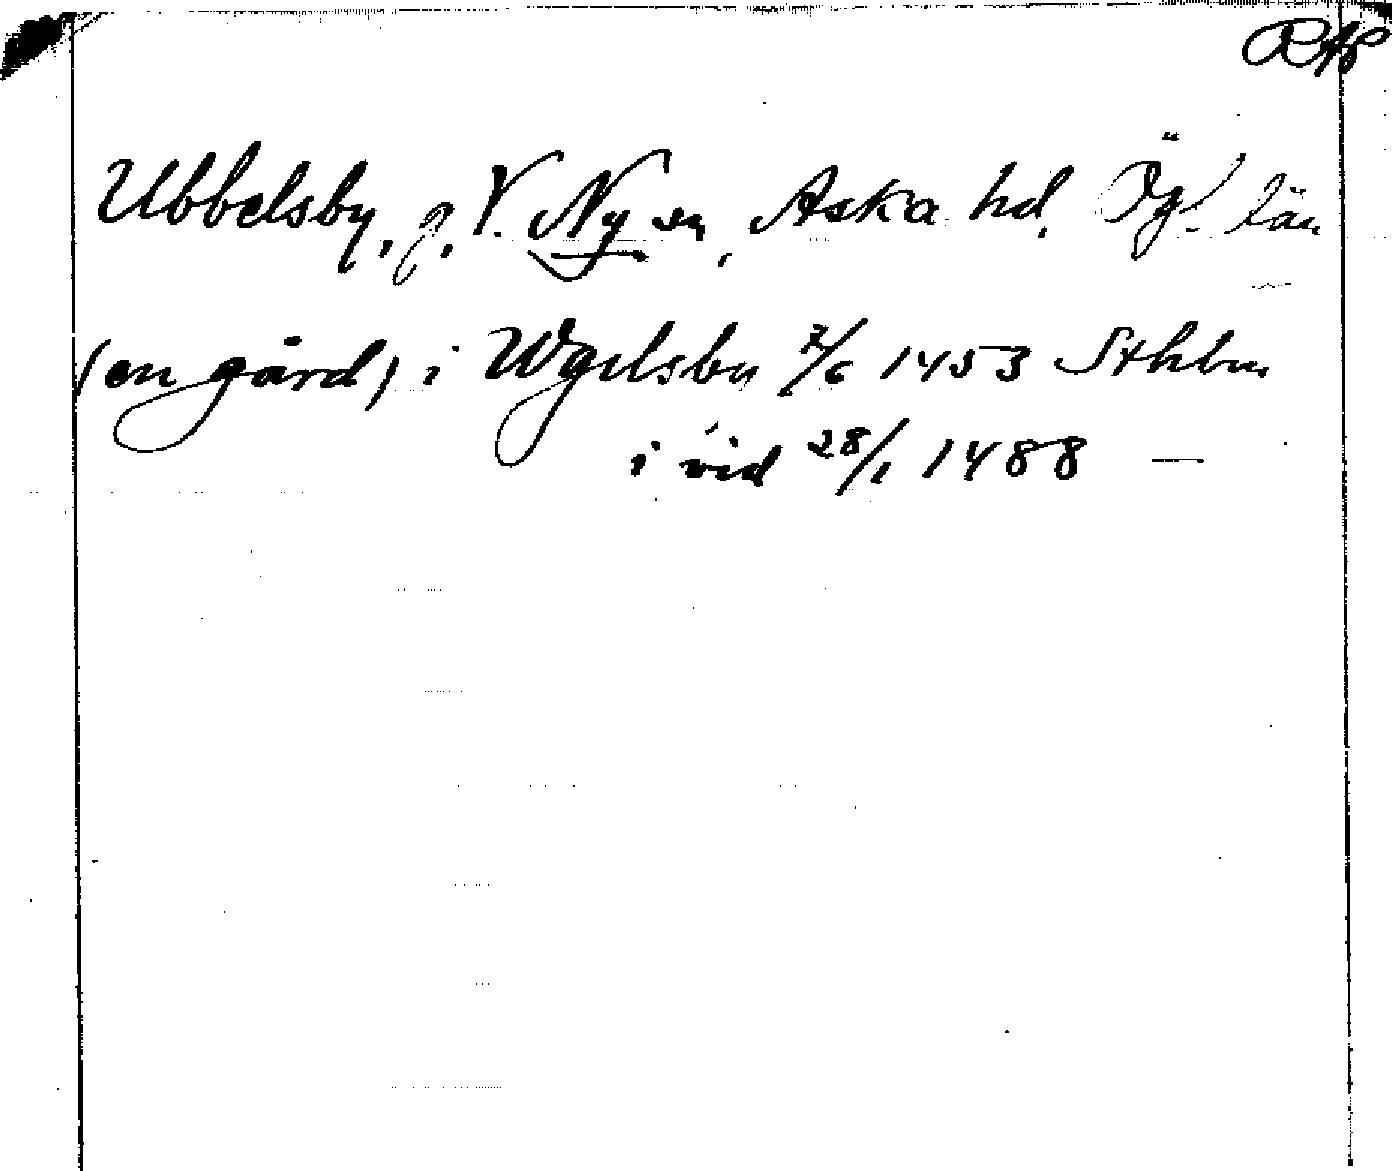 RAP
Ubbelsby, g, V. Ny sn, Aska hd, Ög. län
(en gård) i Wgelsby 2/6 1453 Sthlm
i vid 28/1 1488 —